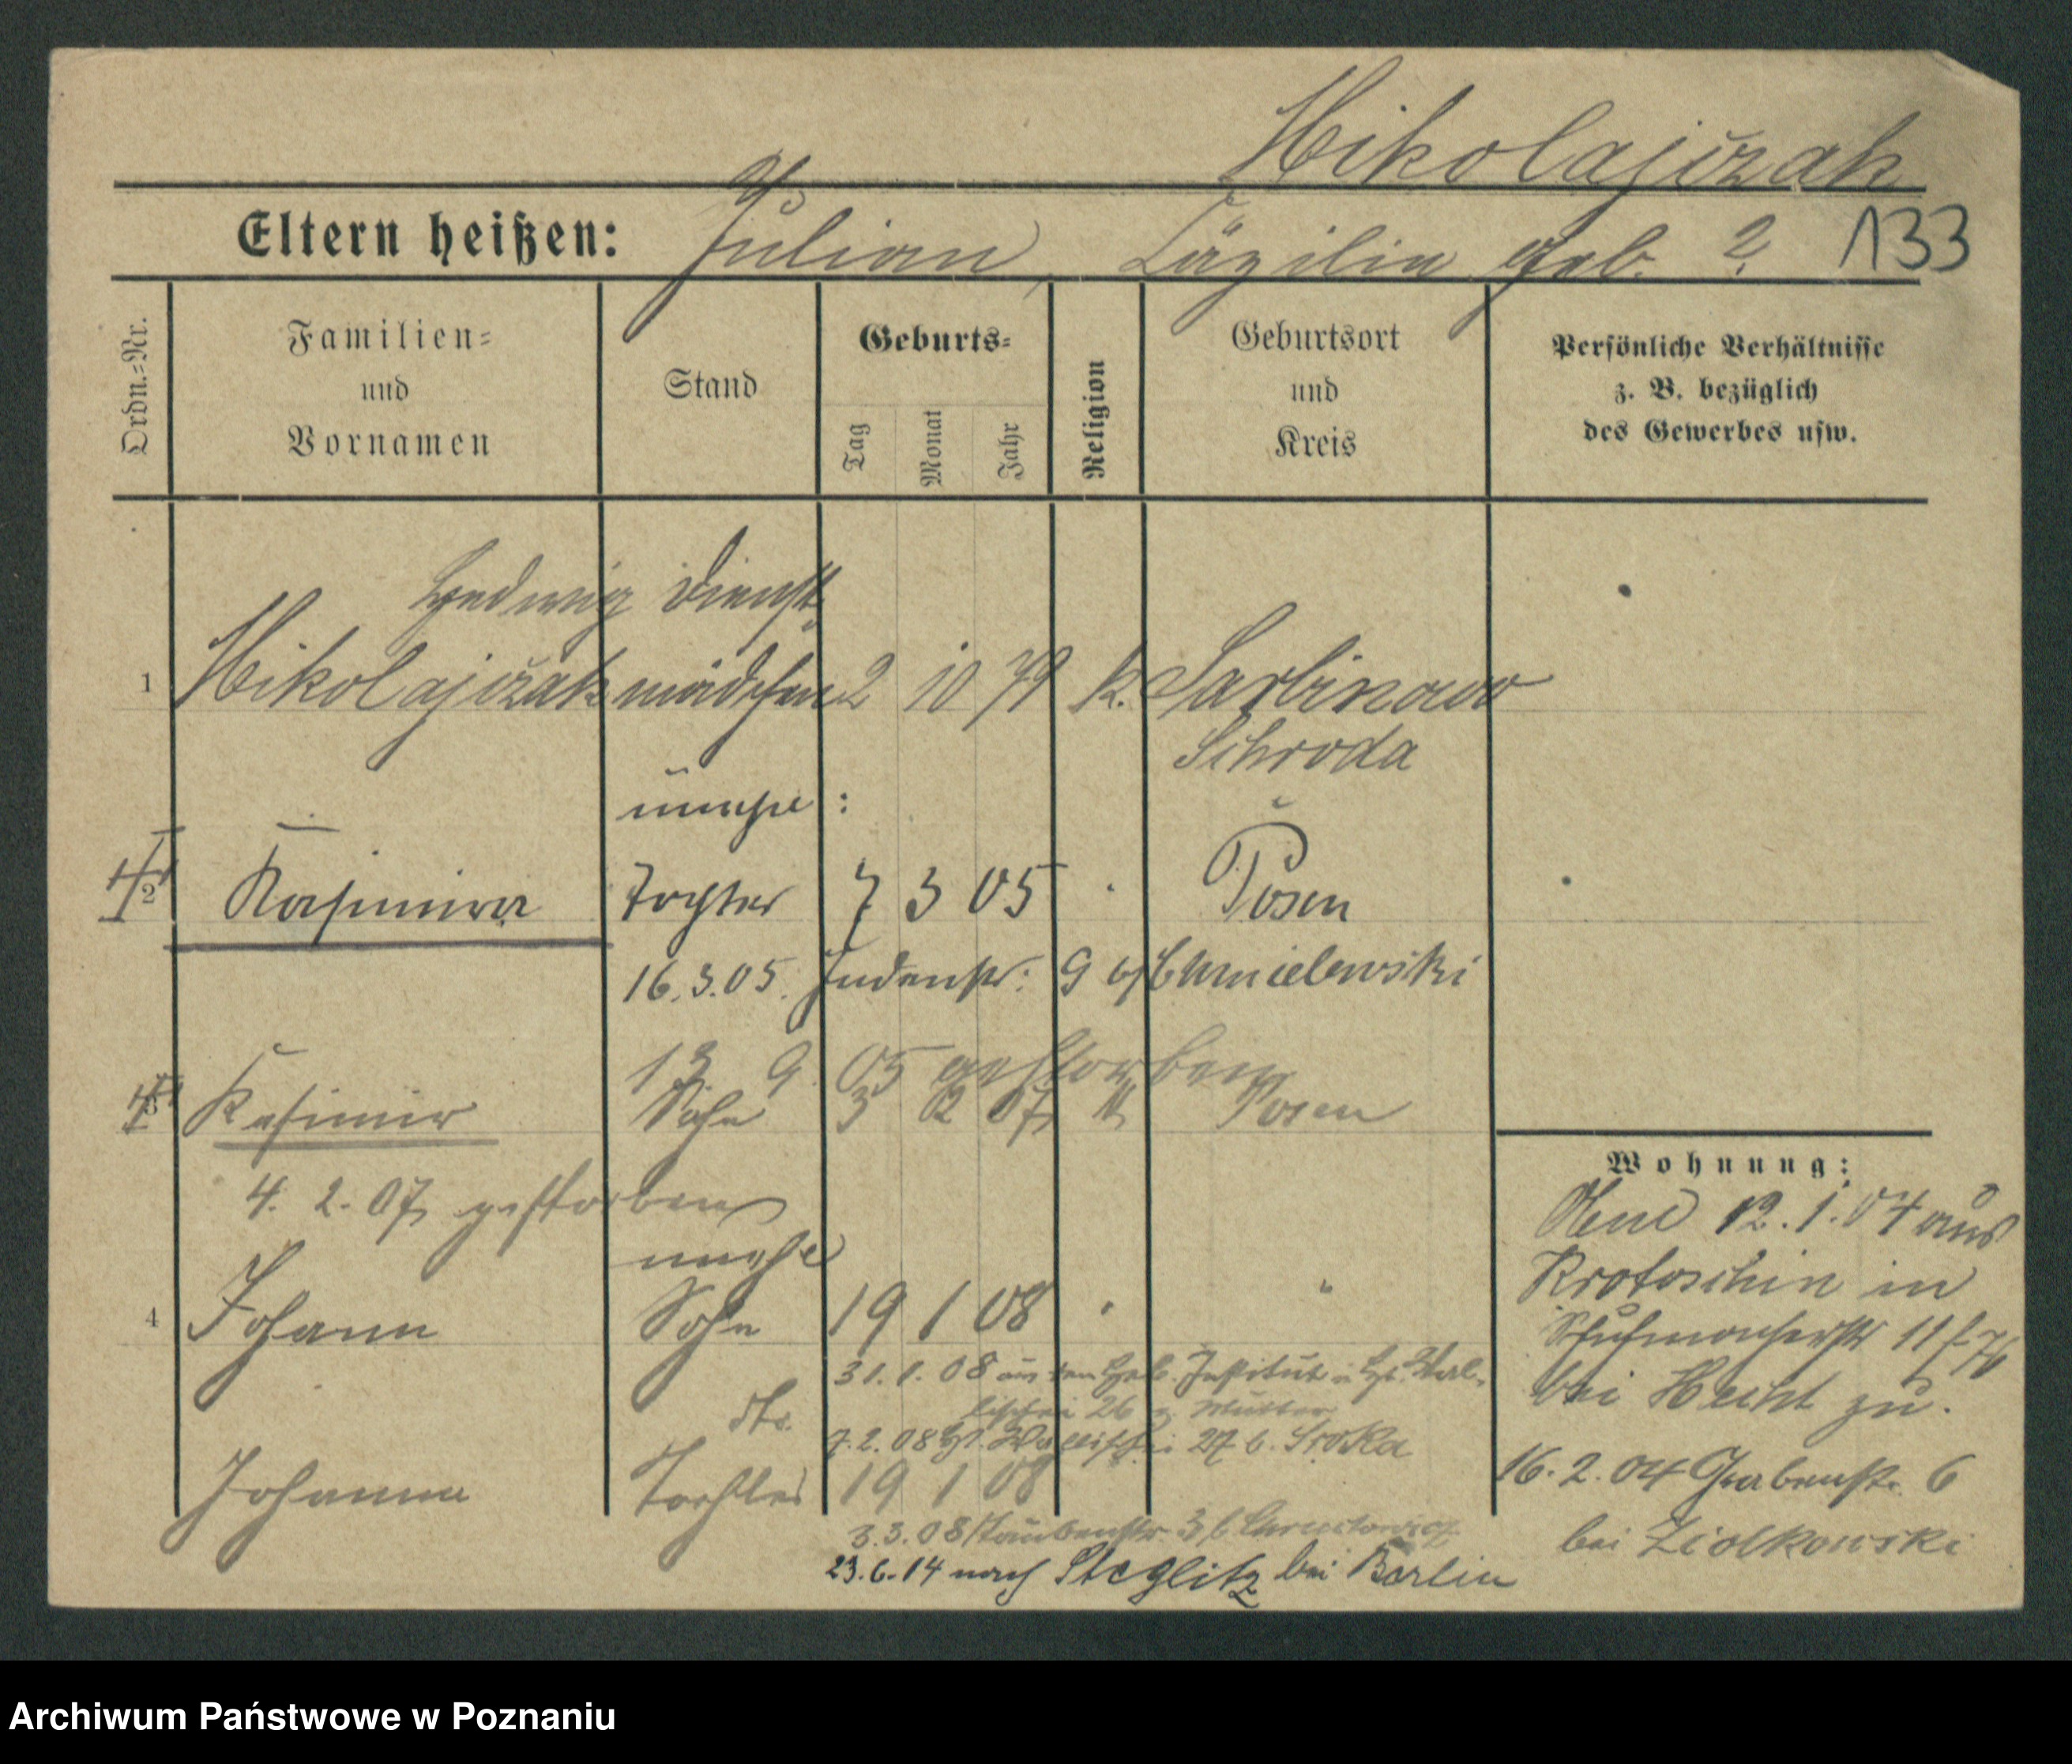 Mikolajczak
Eltern heißen: Julian, Cäzilia geb. ? 133
Ordn.-Nr.
Familien-
und
Vornamen
Stand
Geburts-
Tag
Monat
Jahr
Religion
Geburtsort
und
Kreis
Persönliche Verhältnisse
z. B. bezüglich
des Gewerbes usw.
Hedwig Dienst
1 Mikolajczak mädchen 2 10 79 k. Sarbinowo
Schroda
unehe:
2 Kasimira Tochter 7 3 05 " Posen
16.3.05. Judenstr. 9 b/ Chmielewski
13 9. 05 gestorben
3 Kasimir Sohn 3 2 07 k Posen
4. 2. 07 gestorben
unehe
4 Johann Sohn 19 1 08 " "
31.1.08 aus dem Heb. Institut n.
26 z. Mutter
dto.
7.2.08 Wallischei 27 b. Sroka
Johanna Tochter 19 1 08
3.3.08 Taubenstr. 3 b.
23.6.14 nach Steglitz bei Berlin
Wohnung:
12.1.04 aus
Krotoschin in
Schuhmacherstr 11
bei Hecht zu.
16.2.04 Grabenstr. 6
bei Ziolkowski
Archiwum Państwowe w Poznaniu